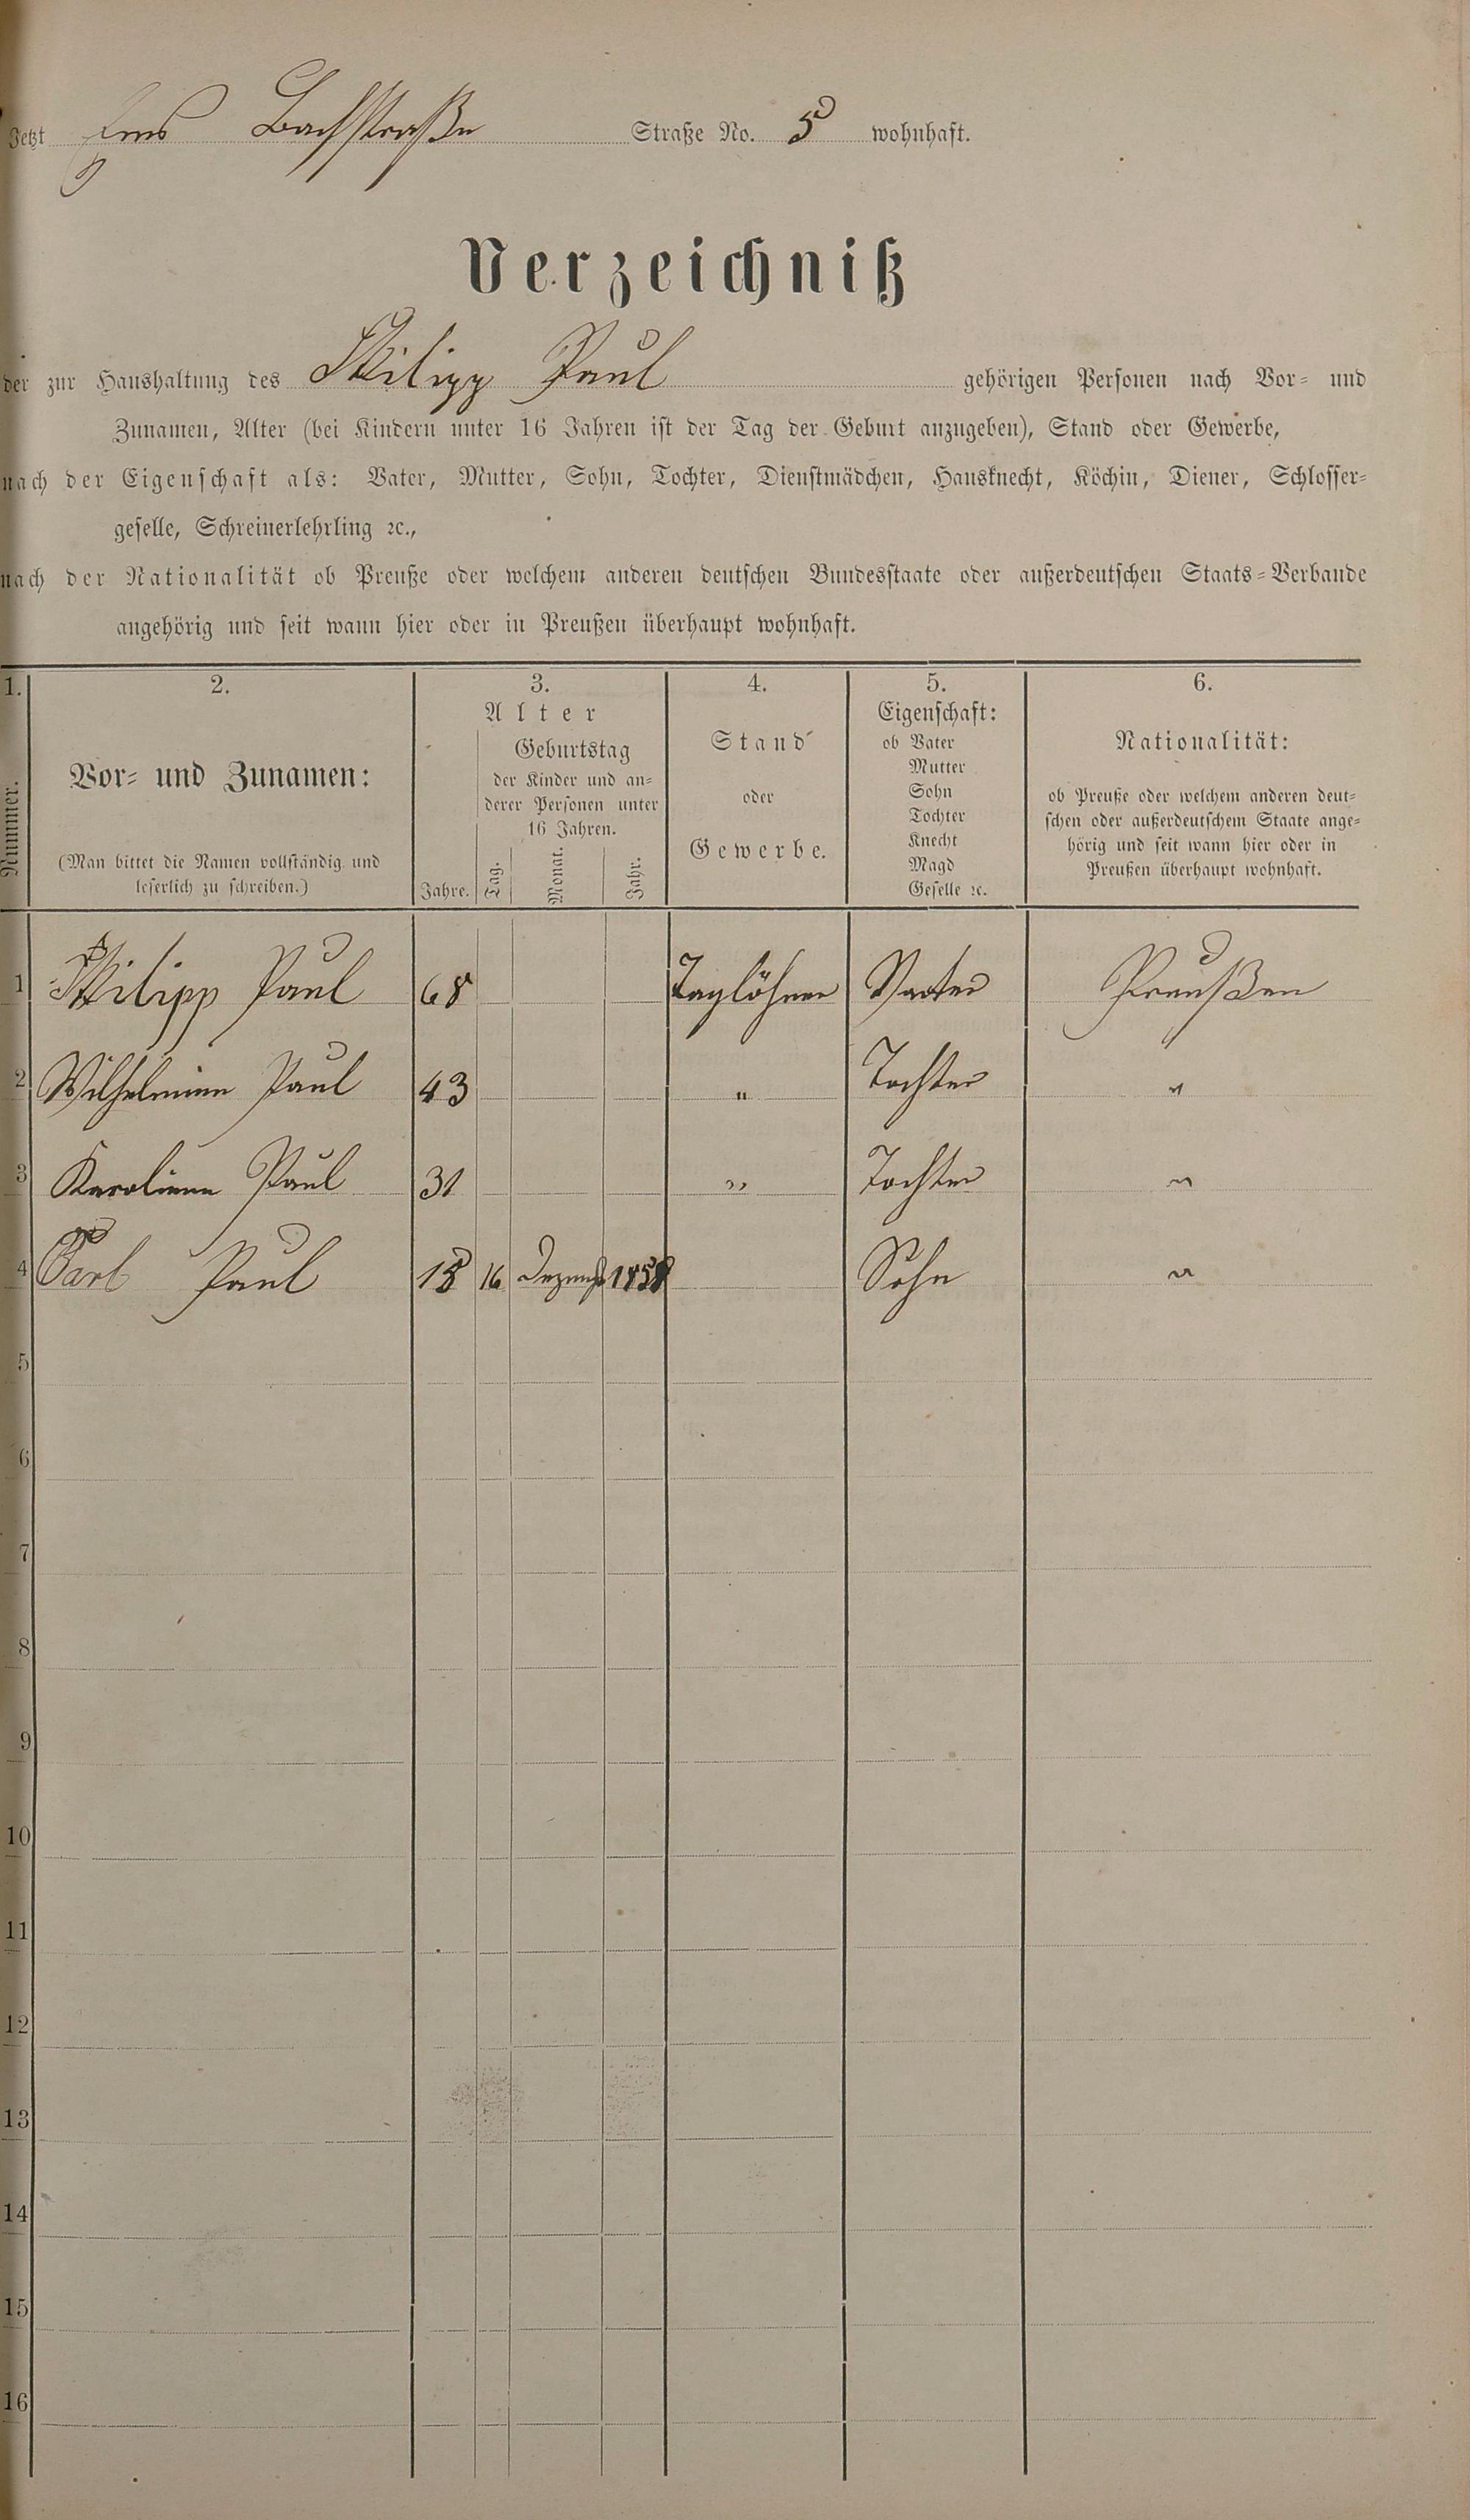 Jetzt Ems Bachstraße Straße No. 5 wohnhaft.
Verzeichniß
der zur Haushaltung des Philipp Paul gehörigen Personen nach Vor- und
Zunamen, Alter (bei Kindern unter 16 Jahren ist der Tag der Geburt anzugeben), Stand oder Gewerbe,
nach der Eigenschaft als: Vater, Mutter, Sohn, Tochter, Dienstmädchen, Hausknecht, Köchin, Diener, Schlosser-
geselle, Schreinerlehrling ꝛc.,
nach der Nationalität ob Preuße oder welchem anderen deutschen Bundesstaate oder außerdeutschen Staats-Verbande
angehörig und seit wann hier oder in Preußen überhaupt wohnhaft.
1.
Nummer.
2.
Vor- und Zunamen:
(Man bittet die Namen vollständig und
leserlich zu schreiben.)
3.
Alter
Jahre.
Geburtstag
der Kinder und an-
derer Personen unter
16 Jahren.
Tag. Monat. Jahr.
4.
Stand
oder
Gewerbe.
5.
Eigenschaft:
ob Vater
Mutter
Sohn
Tochter
Knecht
Magd
Geselle ꝛc.
6.
Nationalität:
ob Preuße oder welchem anderen deut-
schen oder außerdeutschem Staate ange-
hörig und seit wann hier oder in
Preußen überhaupt wohnhaft.
1 Philipp Paul 68 Taglöhner Vater Preußen
2 Wilhelmine Paul 43 " Tochter "
3 Karoline Paul 31 " Tochter "
4 Carl Paul 15 16 Dezemb 1858 Sohn "
5
6
7
8
9
10
11
12
13
14
15
16